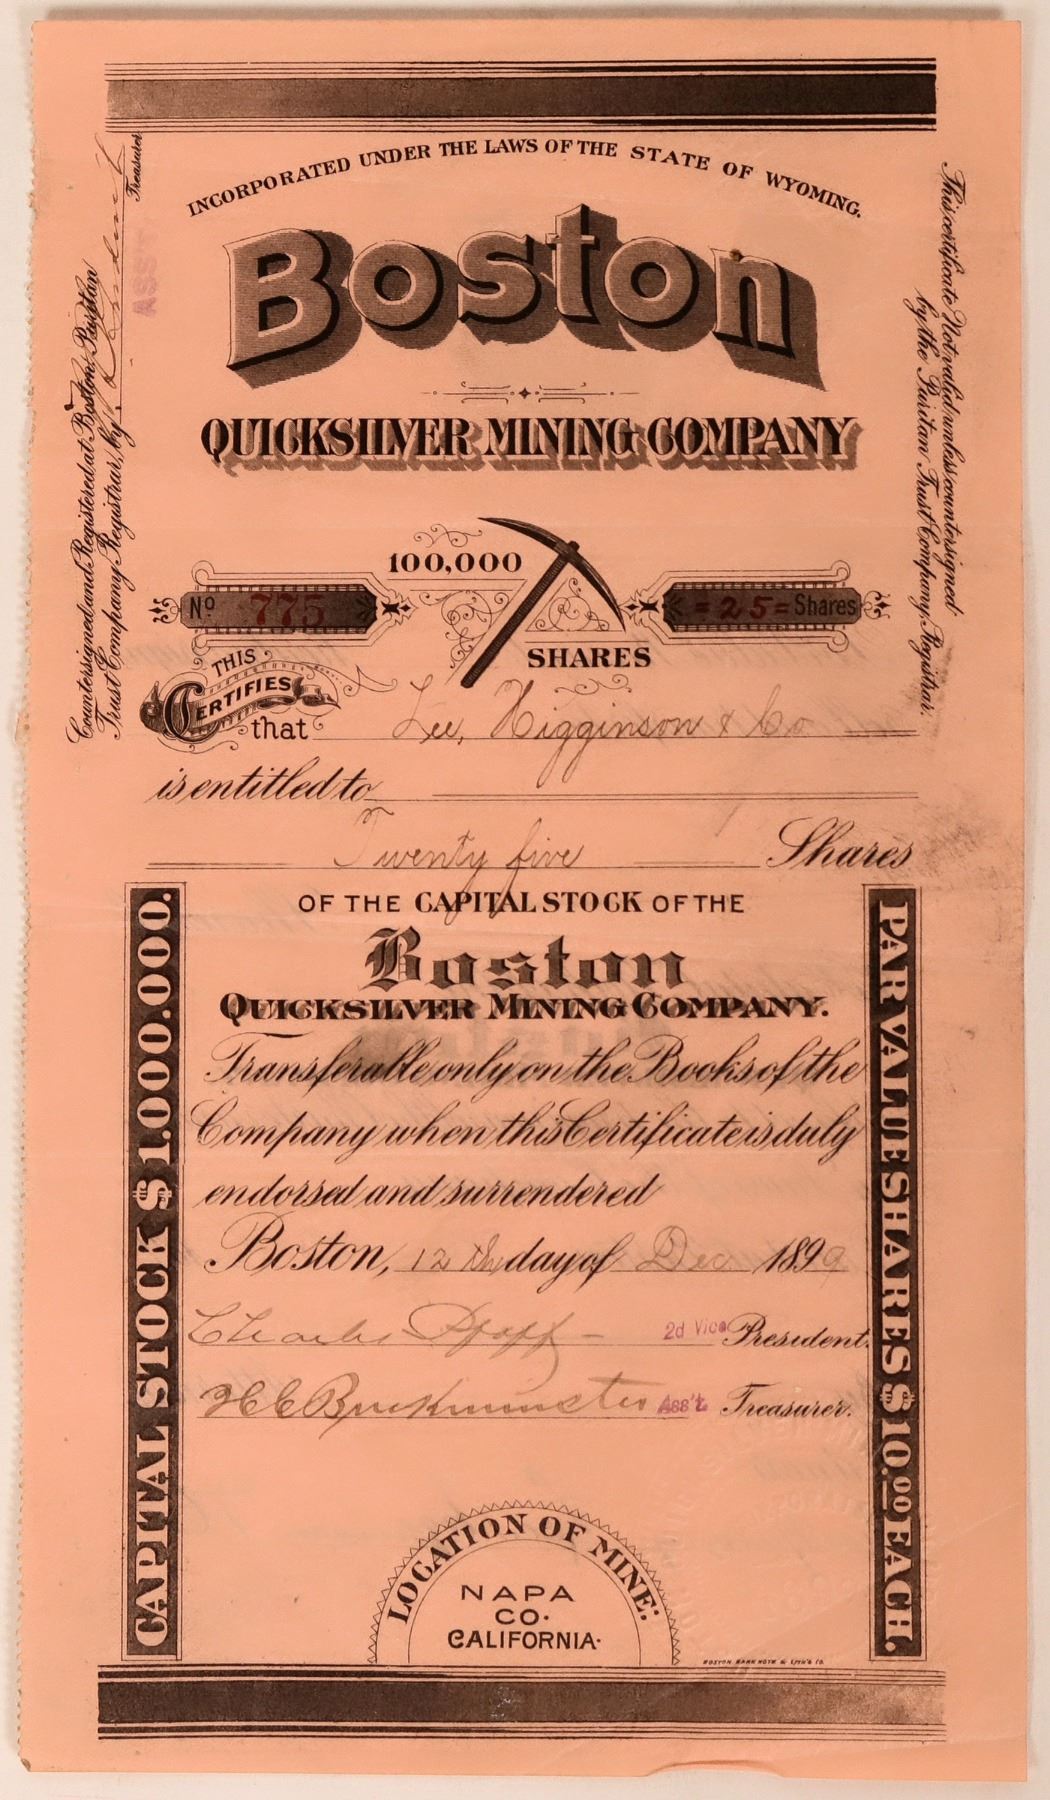 INCORPORATED UNDER THE LAWS OF THE STATE OF WYOMING.
Boston
QUICKSILVER MINING COMPANY
100,000
SHARES
No 775
=25= Shares
THIS
CERTIFIES
that Lee, Higginson & Co
is entitled to
Twenty five Shares
OF THE CAPITAL STOCK OF THE
Boston
QUICKSILVER MINING COMPANY.
Transferable only on the Books of the
Company when this Certificate is duly
endorsed and surrendered
Boston, 12th day of Dec 1899
Charles Pfaff 2d Vice President.
H C Buckminster Ass't Treasurer.
LOCATION OF MINE:
NAPA
CO.
CALIFORNIA.
BOSTON BANK NOTE & LITH'G CO.
CAPITAL STOCK $1.000.000.
PAR VALUE SHARES $10.00 EACH.
Countersigned and Registered at Boston, Puritan
Trust Company Registrar, by
Treasurer
ASST
This certificate Not valid unless countersigned
by the Puritan Trust Company, Registrar.